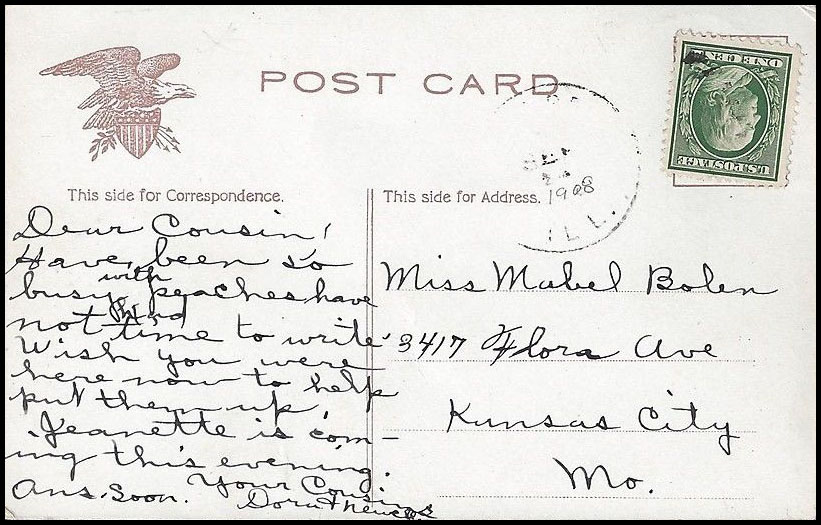 POST CARD
U.S. POSTAGE
ONE CENT
SEP
1908
ILL.
This side for Correspondence.
This side for Address.
Dear Cousin,
Have been so
busy with peaches have
not had time to write
Wish you were
here now to help
put them up.
Jeanette is com-
ing this evening.
Ans. Soon. Your Cousins
Miss Mabel Bolen
3417 Flora Ave
Kansas City
Mo.